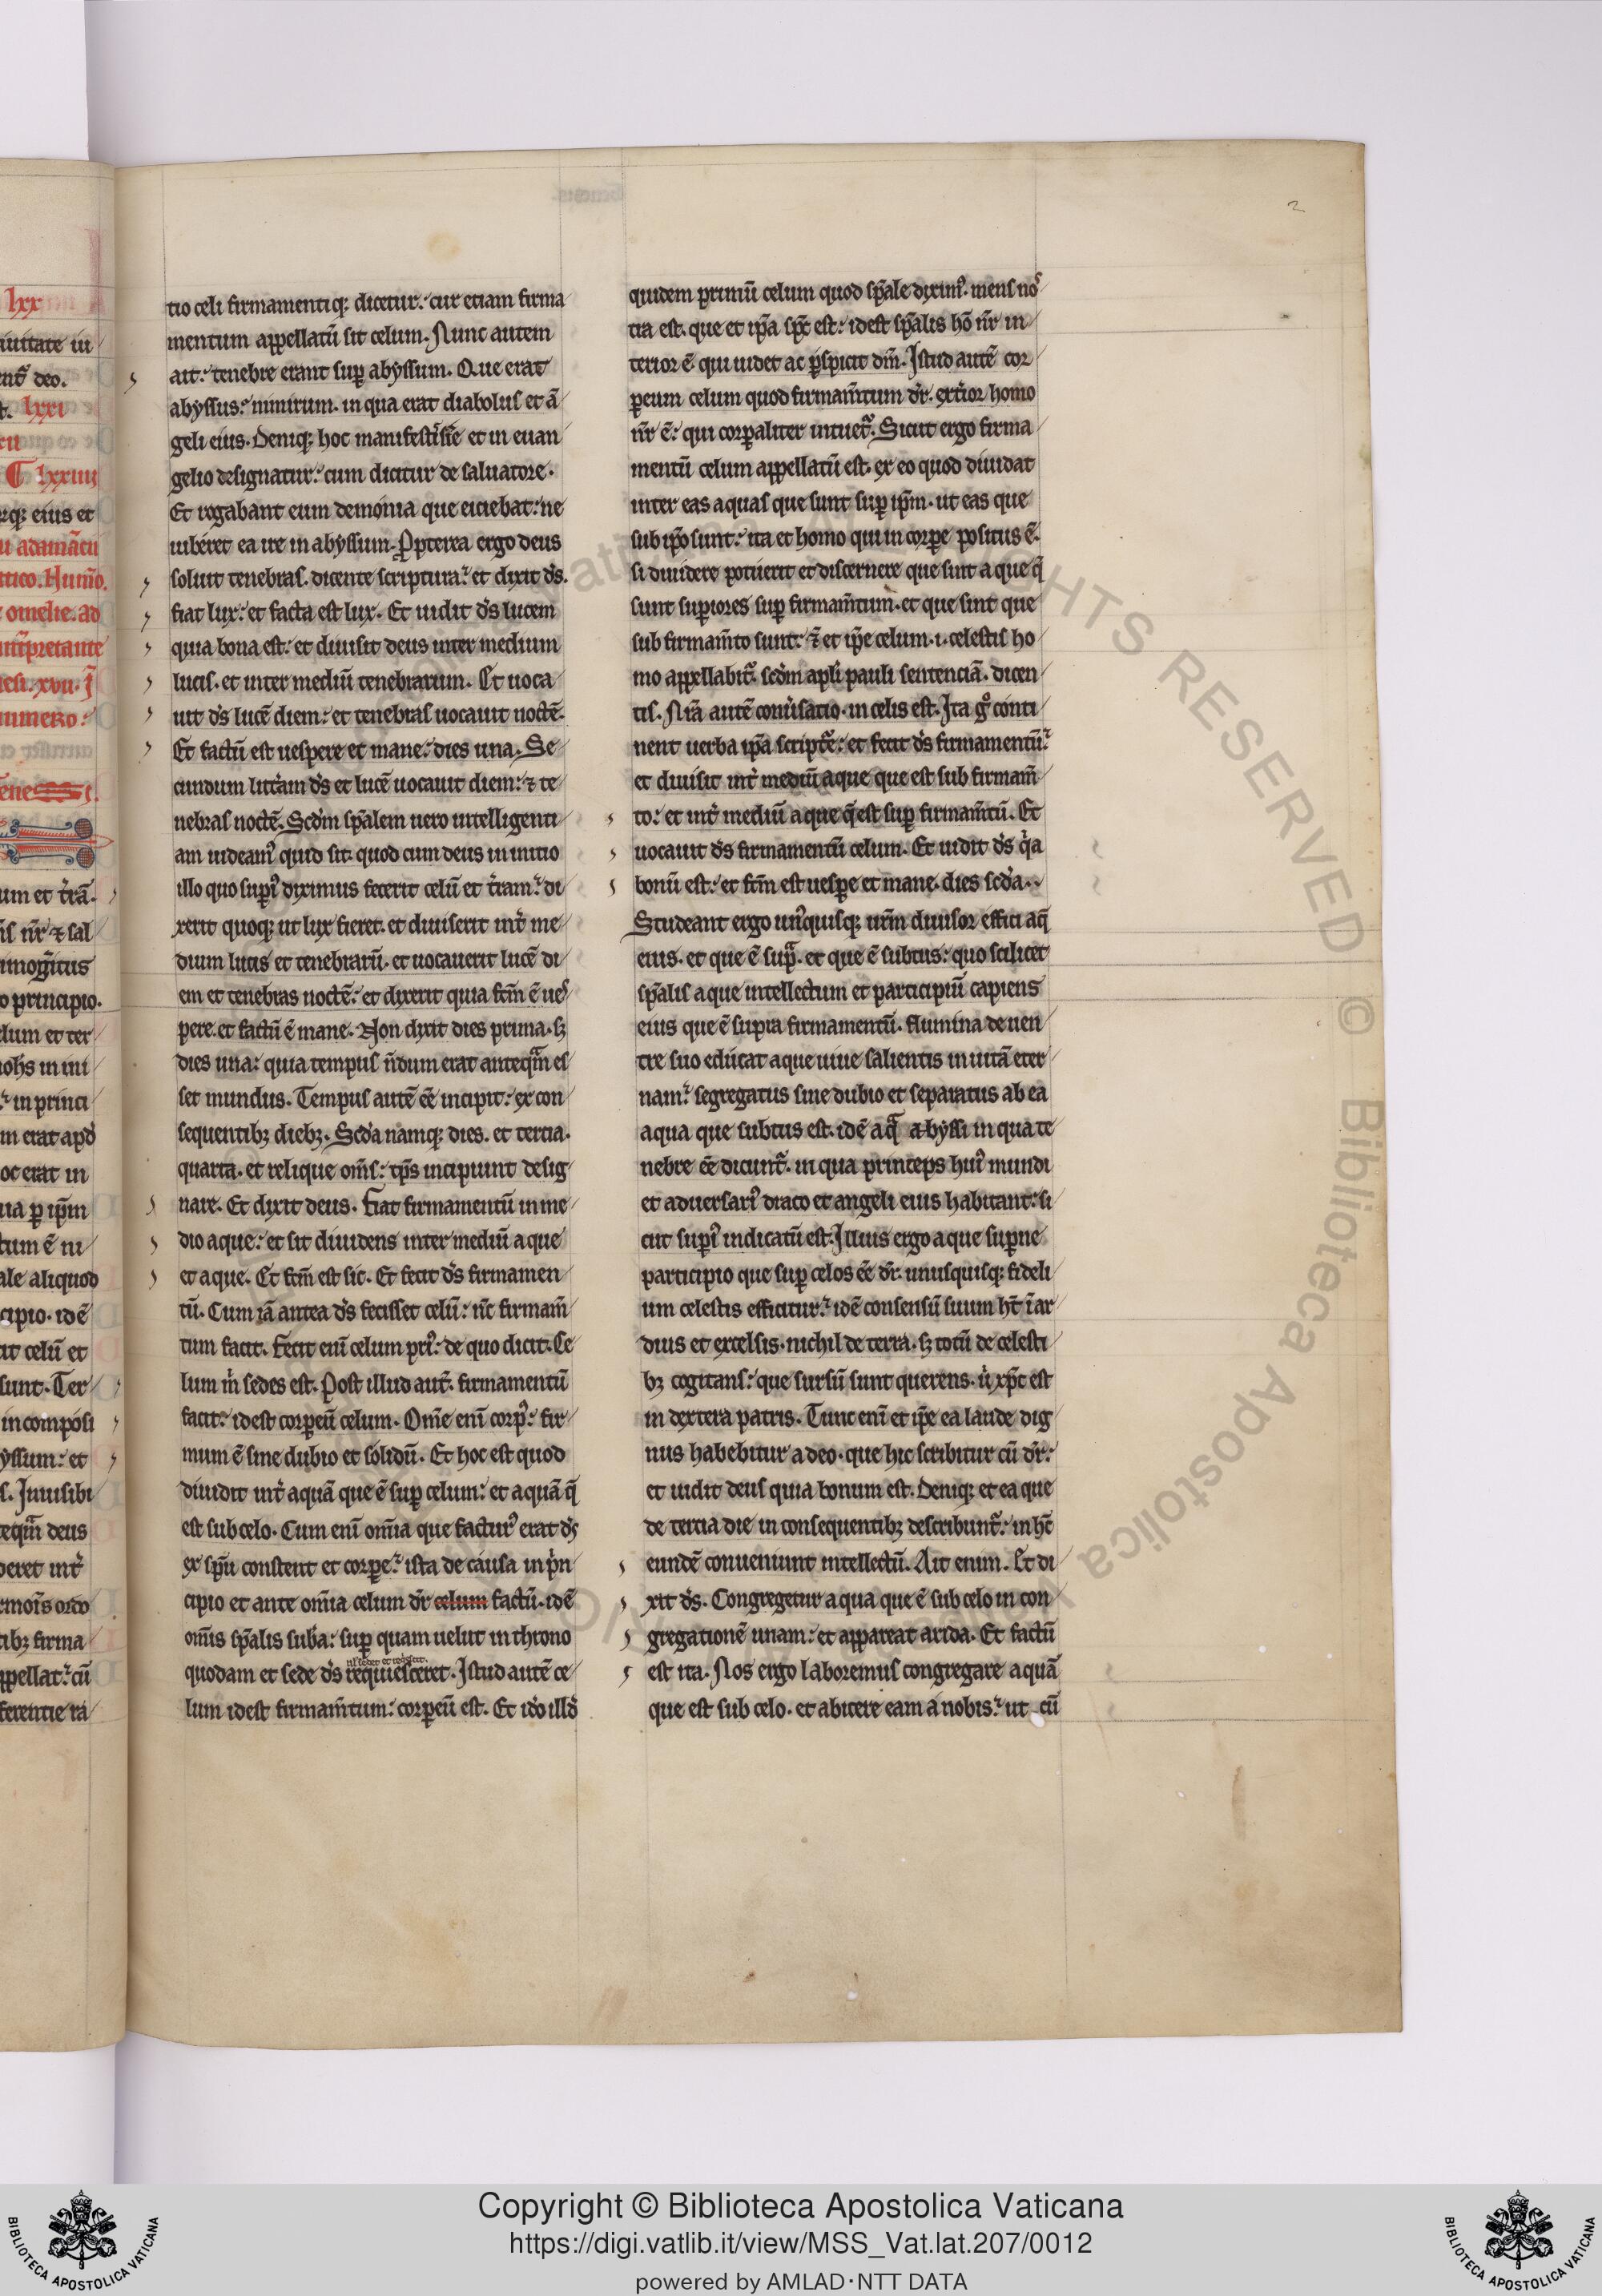 lxx
iuitate iu
ent᷒ deo.
t. lxxi
ru
lxxiiij
rq; eius et
u adamācu
ttico. Hum̄o.
omelie. ad
int̄pretante
iesi. xvii. J̄
numero
tio celi firmamentiq; dicetur: cur etiam firma
mentum appellatū sit celum. Nunc autem
ait: tenebre erant suꝑ abyssum. Que erat
abyssus: nimirum. in qua erat diabolus et ā
geli eius. Deniq; hoc manifestissīe et in euan
gelio designatur: cum dicitur de saluatore.
Et rogabant eum demonia que eiciebat: ne
iuberet ea ire in abyssum. Ꝓpterea ergo deus
soluit tenebras. dicente scriptura: et dixit d̄s.
fiat lux: et facta est lux. Et uidit d̄s lucem
quia bona est: et diuisit deus inter medium
lucis. et inter mediū tenebrarum. Et uoca
uit d̄s lucē diem: et tenebras uocauit noctē.
Et factū est uespere et mane: dies una. Se
cundum litt̄am d̄s et lucē uocauit diem: ⁊ te
nebras noctē. Scd̄m sp̄alem uero intelligenti
am uideamꝰ quid sit. quod cum deus in initio
illo quo supiꝰ diximus fecerit celū et t̄ram: di
xerit quoq; ut lux fieret. et diuiserit int̄ me
dium lucis et tenebrarū. et uocauerit lucē di
em et tenebras noctē: et dixerit quia fcm̄ ē ues
pere. et factū ē mane. Non dixit dies prima. sꝫ
dies una: quia tempus n̄dum erat anteqᵃm es
set mundus. Tempus autē ēē incipit: ex con
sequentibꝫ diebꝫ. Scd̄a namq; dies. et tercia.
quarta. et relique om̄s: tp̄s incipiunt desig
nare. Et dixit deus. Fiat firmamentū in me
dio aque: et sit diuidens inter mediū aque
et aque. Et fcm̄ est sic. Et fecit d̄s firmamen
tū. Cum iā antea d̄s fecisset celū: nc̄ firmam̄
tum facit. Fecit eni celum priꝰ: de quo dicit. Ce
lum m̄ sedes est. Post illud aut̄. firmamentū
facit: idest corꝑeū celum. Om̄e enī corpꝰ: fir
mum ē sine dubio et solidū. Et hoc est quod
diuidit int̄ aquā que ē suꝑ celum: et aquā q̄
est sub celo. Cum enī om̄ia que facturꝰ erat d̄s
ex sp̄u constent et corꝑe: ista de causa in pⁱn
cipio et ante om̄ia celum dr̄ celum factū. idē
om̄is sp̄alis suba: suꝑ quam uelut in throno
quodam et sede d̄s requiesceret. Istud autē ce
lum idest firmam̄tum: corꝑeū est. Et id̄o illd̄
quidem primū celum quod sp̄ale diximꝰ. mens no
tra est. que et ip̄a sp̄c est: idest sp̄alis hō nr̄ in
terior ē qui uidet ac ꝑspicit dm̄. Istud autē cor
ꝑeum celum quod firmam̄tum dr̄. ext̄ior homo
nr̄ ē: qui corꝑaliter intuetᷣ. Sicut ergo firma
mentū celum appellatū est. ex eo quod diuidat
inter eas aquas que sunt suꝑ ip̄m. ut eas que
sub ip̄o sunt: ita et homo qui in corꝑe positus ē.
si diuidere potuerit et discernere que sint aque q̄
sunt suꝑiores suꝑ firmam̄tum. et que sint que
sub firmam̄to sunt: ⁊ et ip̄e celum .i. celestis ho
mo appellabitᷣ. scd̄m apl̄i pauli sentenciā. dicen
tis. Nr̄a autē conu̾satio. in celis est. Ita gͦ conti
nent uerba ip̄a scripte̾: et fecit d̄s firmamentū:
et diuisit int̄ mediū aque que est sub firmam̄
to: et int̄ mediū aque q̄ est suꝑ firmam̄tū. Et
uocauit d̄s firmamentū celum. Et uidit d̄s qⁱa
bonū est: et fcm̄ est uesꝑe et mane. dies scd̄a.
Studeant ergo unꝰquisq; ur̄m diuisor effici aq̄
eius. et que ē supᵃ. et que ē subtus: quo scilicet
sp̄alis aque intellectum et participiū capiens
eius que ē supra firmamentū. flumina de uen
tre suo educat aque uiue salientis in uitā eter
nam: segregatus sine dubio et separatus ab ea
aqua que subtus est. idē aqᵃ abyssi in qua te
nebre ēē dicuntᷣ. in qua princeps huiꝰ mundi
et aduersariꝰ draco et angeli eius habitant: si
cut supiꝰ indicatū est. Illius ergo aque suꝑne
participio que suꝑ celos ēē dr̄. unusquisq; fideli
um celestis efficitur: idē consensū suum ht̄ ī ar
duis et excelsis. nichil de terra. sꝫ totū de celesti
bꝫ cogitans: que sursū sunt querens. ui xp̄c est
in dextera patris. Tunc enī et ip̄e ea laude dig
nus habebitur a deo. que hic scribitur cū dr̄:
et uidit deus quia bonum est. Deniq; et ea que
de tercia die in consequentibꝫ describuntᷣ: in hc̄
eundē conueniunt intellectū. Ait enim. Et di
xit d̄s. Congregetur aqua que ē sub celo in con
gregationē unam: et appareat arida. Et factū
est ita. Nos ergo laboremus congregare aquā
que est sub celo. et abicere eam a nobis: ut cū
2
Copyright © Biblioteca Apostolica Vaticana
https://digi.vatlib.it/view/MSS_Vat.lat.207/0012
powered by AMLAD·NTT DATA
BIBLIOTECA APOSTOLICA VATICANA
BIBLIOTECA APOSTOLICA VATICANA